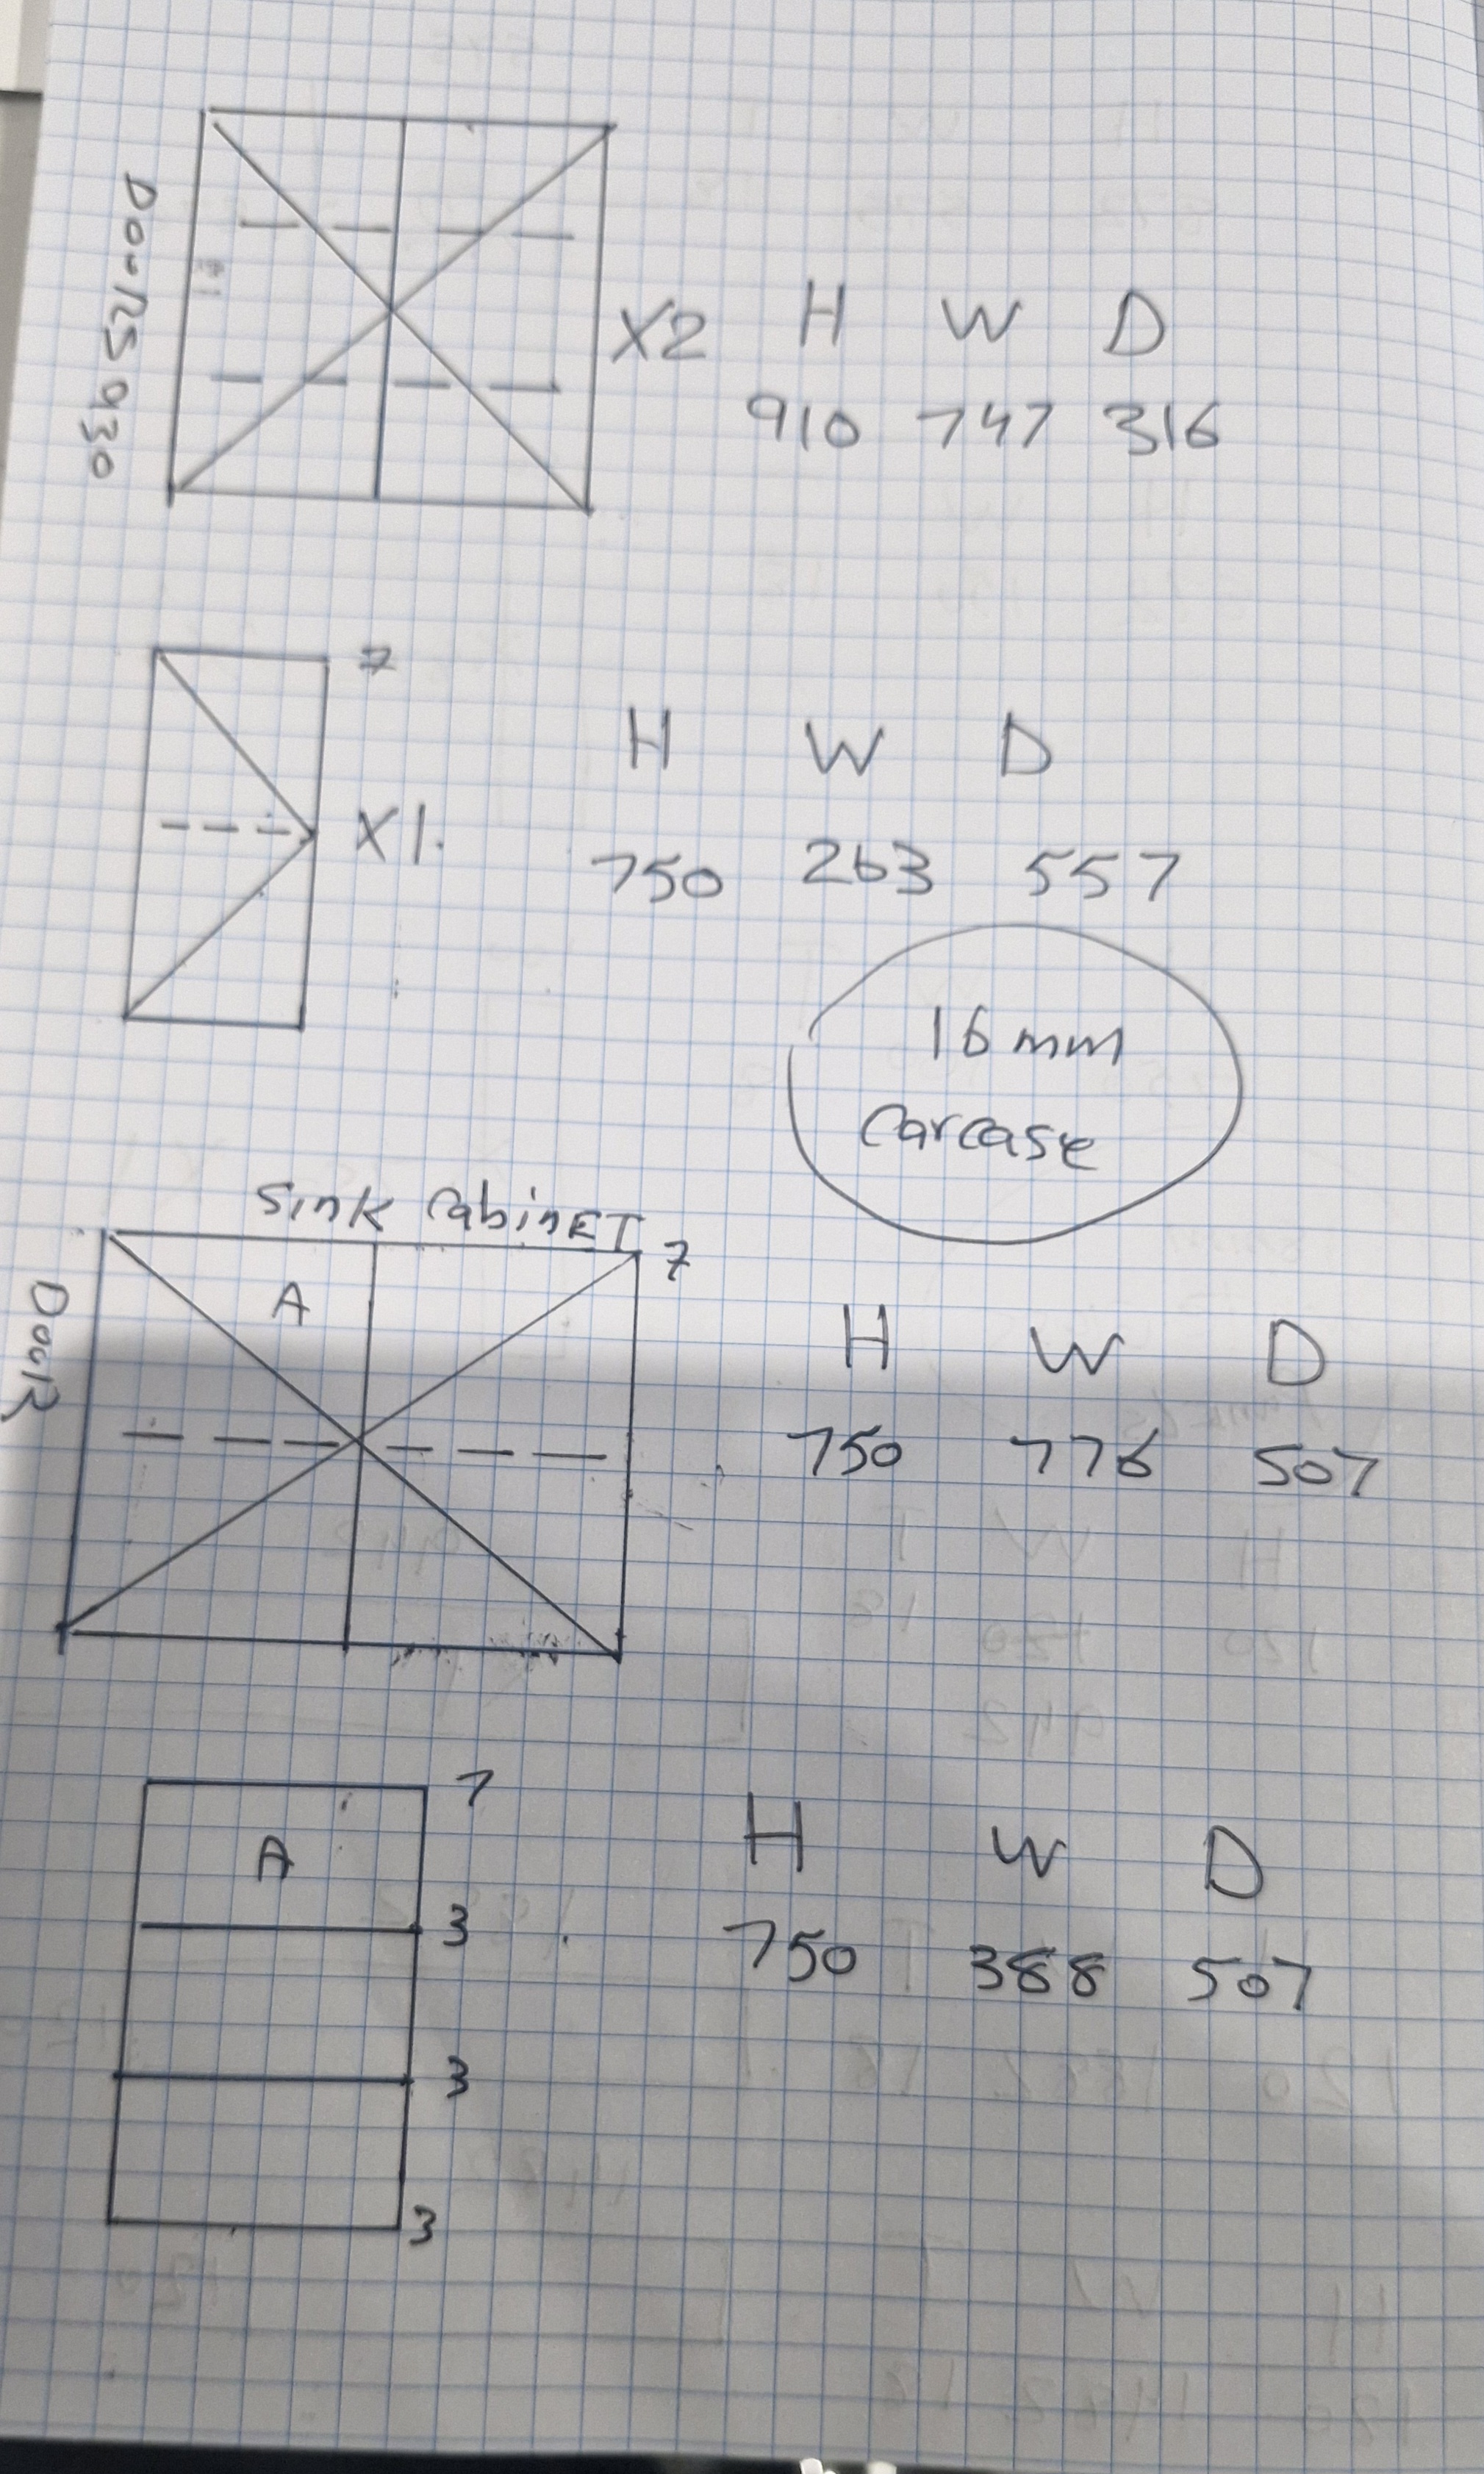 DOORS 930
X2 H W D
910 747 316
7
H W D
X1.
750 263 557
16mm
carcase
Sink cabinET
7
A
DOOR
H W D
750 776 507
7
A
H W D
3
750 388 507
3
3